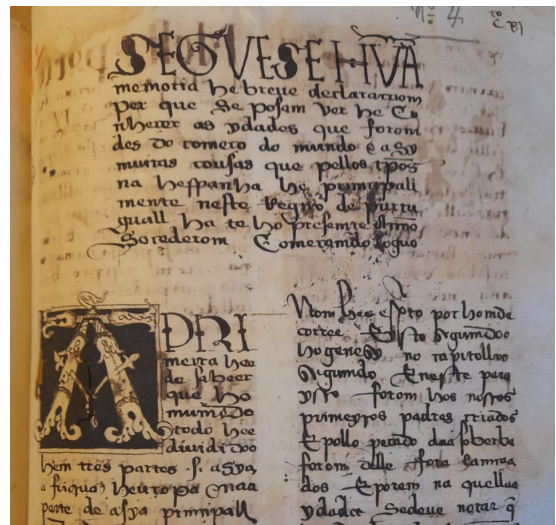 SEGVESE HVÃ
memoria he breue declaraçom
per que se posam ver he Co
nheçer as ydades que forom
des do começo do mundo e asy
muitas cousas que pellos tpos
na hespanha he prinçipall
mente neste Regno de purtu
guall ha te ho presemte Anno
Soçederom Começamdo loguo
A PRI
meira hee
de sabeer
que ho
mumdo
todo hee
diuidido
hem tres partes s asya
e friqua heuropa e naa
parte de asya primçipall
Nom hee esto por homde
correr Esto segumdo
ho genesy no capitollo
segumdo E neste para
yso forom hos nosos
primeyros padres criados
E pollo pecado daa soberba
forom delle fora lamça
dos E porem na quellas
ydades sedeue notar q̃